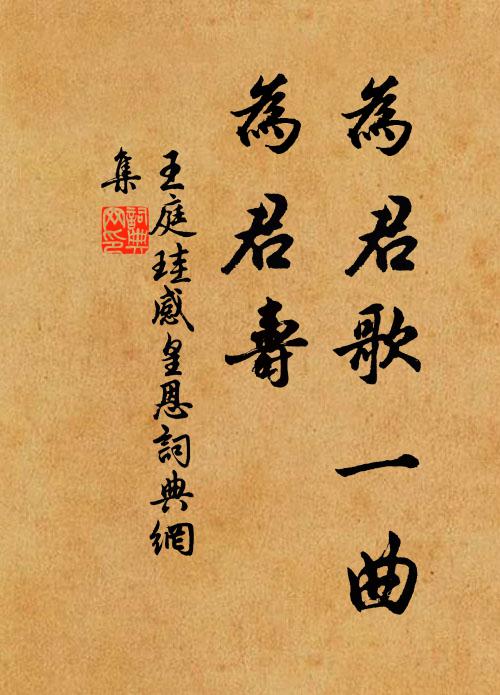 為君歌一曲
為君壽
王庭珪感皇恩詞典網
集
詞典
网印